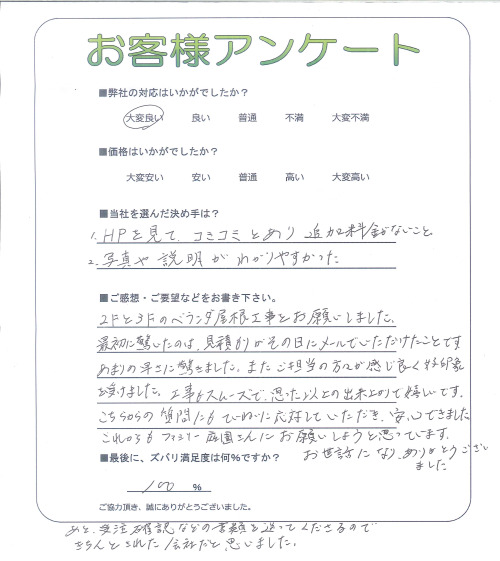 お客様アンケート
■弊社の対応はいかがでしたか？
大変良い 良い 普通 不満 大変不満
■価格はいかがでしたか？
大変安い 安い 普通 高い 大変高い
■当社を選んだ決め手は？
1. HPを見て、コミコミとあり 追加料金がないこと
2. 写真や説明がわかりやすかった
■ご感想・ご要望などをお書き下さい。
2Fと3Fのベランダ屋根工事をお願いしました。
最初に驚いたのは、見積りがその日にメールでいただけたことです
あまりの早さに驚きました。またご担当の方々が感じ良く好印象
を受けました。工事もスムーズで、思った以上の出来上りで嬉しいです。
こちらからの質問にもていねいに応対していただき、安心できました
これからもファミリー庭園さんにお願いしようと思っています。
お世話になり、ありがとうござい
ました
■最後に、ズバリ満足度は何%ですか？
100 %
ご協力頂き、誠にありがとうございました。
あと、受注確認などの書類を送ってくださるので
きちんとされた会社だと思いました。